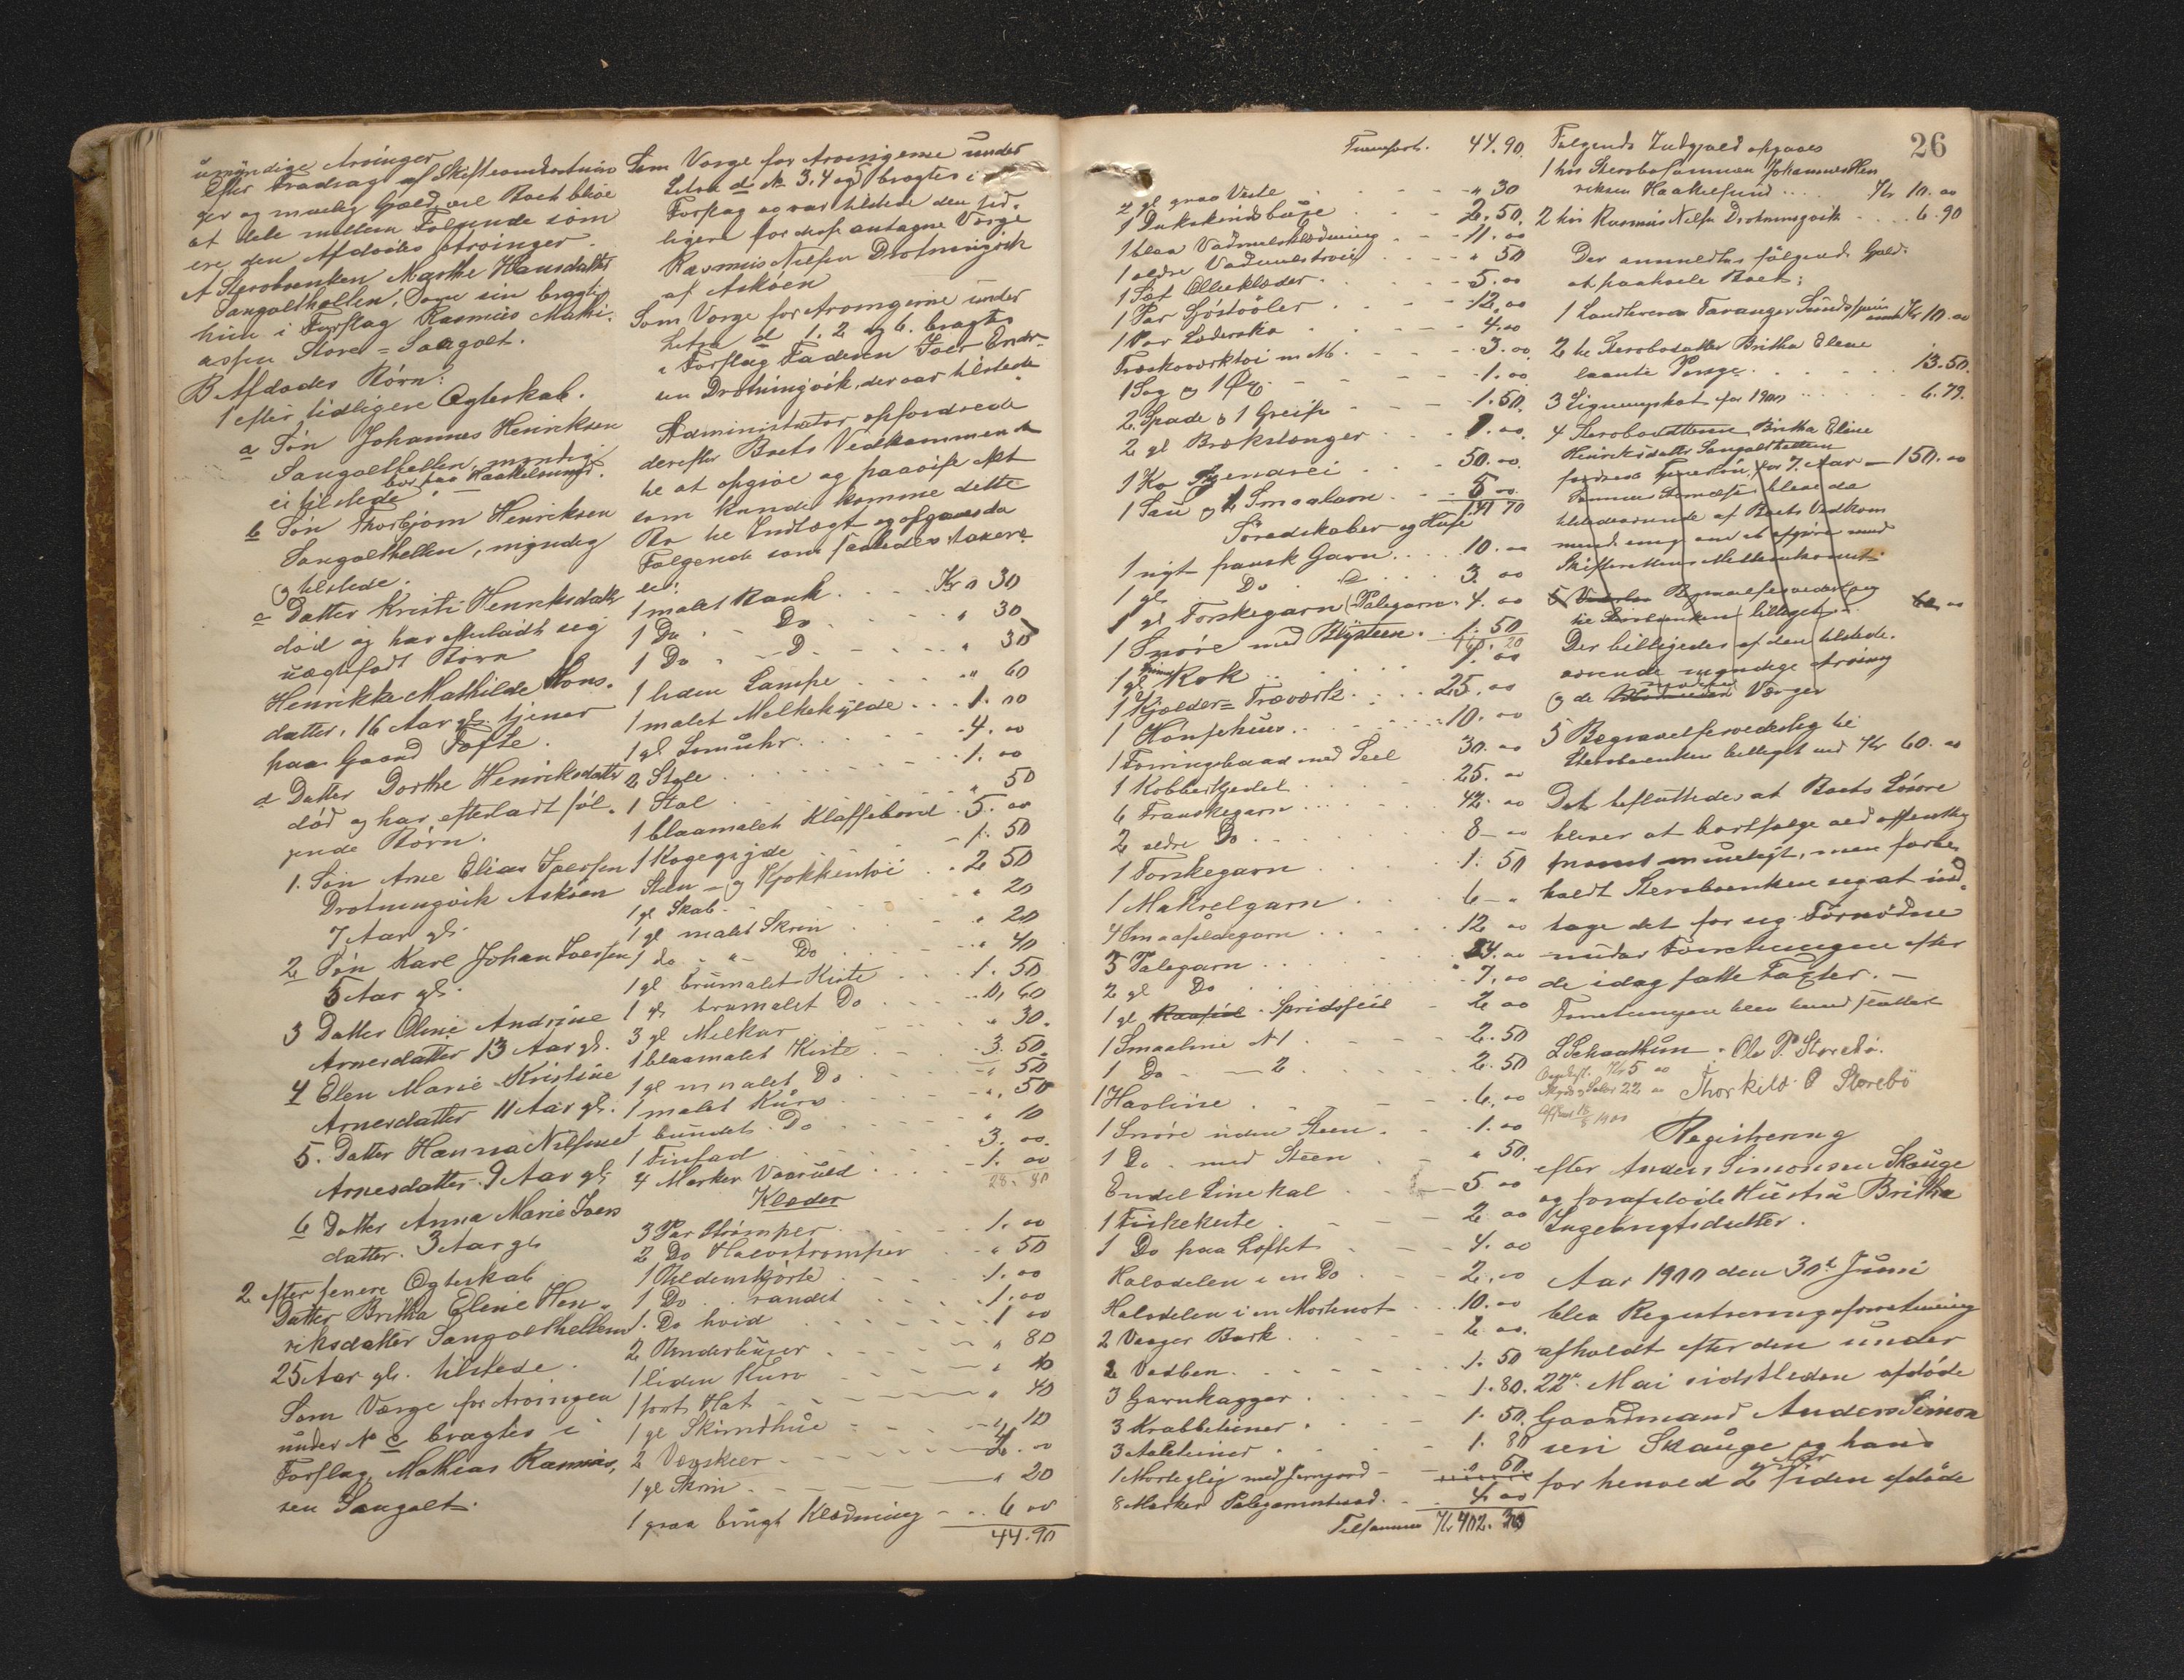 umyndige Arvinger
Efter Fradrag af Skifteomkostnin
ger og mulig Gjæld vil Boet blive
at dele mellem Følgende som
ere den Afdødes Arvinger.
A Sterboenken Marthe Hansdatter
Sangolthellen, som sin
hun i Forslag Rasmus Mathi-
assen Store-Sangolt.
B Afdødes Børn:
1 efter tidligere Ægteskab.
a Søn Johannes Henriksen
Sangolthellen, myndig
bor paa Haakelsund.
ei tilstede
b Søn Thorbjørn Henriksen
Sangolthellen, myndig
og tilstede.
c Datter Kristi Henriksdatter
død og har efterladt sig
uægtefødt Børn
Henrikke Mathilde Mons-
datter, 16 Aar gl. tjener
paa Gaard Tofte.
d Datter Dorthe Henriksdatter
død og har efterladt føl-
gende Børn.
1. Søn Arne Elias Iversen
Drotningvik Askøen
7 Aar gl.
2 Søn Karl Johan Iversen
5 Aar gl.
3 Datter Oline Andrine
Arnesdatter 13 Aar gl.
4 Elen Marie Kristine
Arnesdatter 11 Aar gl.
5. Datter Hanna Nilsine
Arnesdatter 9 Aar gl.
6 Datter Anna Marie Ivers
datter. 3 Aar gl.
2 efter senere Ægteskab
Datter Britha Eline Hen-
riksdatter Sangolthellen
25 Aar gl. tilstede.
Som Værge for Arvingen
under N c bragtes i
Forslag Mathias Rasmus-
sen Sangolt.
Som Værge for Arvingerne under
Litra d No 3, 4 og 5 bragtes i
Forslag og var tilstede den tid-
ligere for disse antagne Værge
Rasmus Nilsen Drotningvik
af Askøen
Som Værge for Arvingerne under
Litra d 1. 2 og 6. bragtes
i Forslag Faderen Iver Endr-
sen Drotningvik, der var tilstede
Administrator opfordrede
derefter Boets Vedkommende
til at opgive og paavise Alt
som kunde komme dette
Bo til Indtægt og opgaves da
Følgende som saaledes taxere-
des:
1 malet Kank Kr " 30
1 Do - Do " 30
1 Do - D " 30
1 liden Lampe " 60
1 malet Melkekylde 1.00
1 gl Lomuhr 4.00
2 Stole 1.00
1 Stol " 50
1 blaamalet Klaffebord 5.00
1 Kogegryde 1.50
Steen- og Kjøkkentøi 2 50
1 gl Skab " 20
1 gl malet Skrin " 20
1 do " Do " 40
1 gl brunmalet Kiste 1.50
1 gl brunmalet Do 0,60
3 gl Melkar " 30.
1 blaamalet Kiste 3.50
1 gl umalet Do " 50
1 malet Kurv " 50
1 bundet Do " 10
1 Tinfad 3.00
4 Marker Vaaruld 1.00
28.80
Klæder
3 Par Strømper 1.00
2 Do Halvstrømper " 50
1 Uldenskjorte 1.00
1 Do randet 1.00
1. Do hvid 1 00
2 Underbuxer " 80
1 liden Kurv " 10
1 sort Hat " 40
1 gl Skindhue " 10
2 Vægskeer 2.00
1 gl Skrin " 20
1 graa brugt Klædning 6 00
44.90
26
Transport. 44.90
2 gl graa Veste " 30
1 Dukskindsbuxe 2.50
1 blaa Vadmelsklædning 11.00
1 ældre Vadmelstrøie " 50
1 Sæt Olieklæder 5.00
1 Par Søstøvler 12.00
1 Par Lædersko 4.00
Træskoværktøi m M. 3.00
1 Sag og 1 Øx 1.00
2 Spade og 1 Greip 1.50
2 gl Brækstænger 1.00
1 Ko 50.00
1 Sau og 2 Smaalam 5 00
141 70
Søredskaber og Huse
1 nyt fransk Garn 10.00
1 gl. Do 3.00
1 gl Torskegarn (Palegarn 4.00
1 Snøre med Blysteen 1.50
160.20
1 gl Rok 1.00
1 Kjælder-Træværk 25.00
1 Hønsehuus 10.00
1 Færingsbaad med Seil 30.00
1 Kobberkjedel 25.00
6 Franskegarn 42.00
2 ældre Do 8 - 00
1 Torskegarn 1.50
1 Makrelgarn 6 - "
4 Smaasildegarn 12 00
3 Palegarn 24.00
2 gl Do 7.00
1 gl Spridseil 2 00
1 Smaaline N 1 2.50
1 Do - 2 2.50
1 Havline 6.00
1 Snøre uden Steen 1.00
1 Do med Steen " 50.
Endel Linekal 5.00
1 Fiskekiste 2 00
1 Do paa Loftet 4.00
Halvdelen i en Do 2.00
Halvdelen i en Mortenot 10.00
2 Vaager Bark 2.00.
2 Vedben 1.50
3 Garnkagger 1.80.
3 Krabbeteiner 1.50
3 Aaleteiner 1.80
1 50
8 Marker Palegarnstraad 4.00
Tilsammen Kr 402.30
Følgende Tilgjæld opgaves
1 hos Sterbosønnen Johannes Hen
riksen Haakelsund Kr 10.00
2 hos Rasmus Nilsen Drotningvik 6.90
Der anmeldtes følgende Gjæld
at paahvile Boet:
1 Landhandler Tavanger Sund Kr 10.00
2 til Sterbodatter Britha Eline
laante Penge 13.50.
3 Ligningsskat for 1900 6.79.
4 Sterbodatteren Britha Eline
Henriksdatter Sangolthellen
fordrede Tjenerløn for 7. Aar 150.00
tilstedeværende af Boets Vedkom
mende enig om at afgjøre med
Skifterettens Mellemkomst.
5 Begravelsesvederlag
til Enken billiget 60.00
Der billigedes af den tilstede-
værende myndige Arving
og de Værger
5 Begravelsesvederlag til
Sterboenken billiget med Kr 60.00
Det besluttedes at Boets Løsøre
bliver at bortsælge ved offentlig
snarest mueligt, men forbe-
holdt Sterboenken sig at ud-
tage det for sig Fornødne
under Forretningen efter
de idag satte Taxter. -
Forretningen blev hermed sluttet
L Schaathun. Ole P. Storebø.
Kr 5 00
22 00 Thorkild O Storebø
Registrering
efter Anders Simonsen Skauge
og forafdøde Hustru Britha
Ingebrigtsdatter.
Aar 1900 den 30te Juni
blev Registreringsforretning
afholdt efter den under
22de Mai sidstleden afdøde
Gaardmand Anders Simon
sen Skauge og hans
for henved 2 Aar siden afdøde